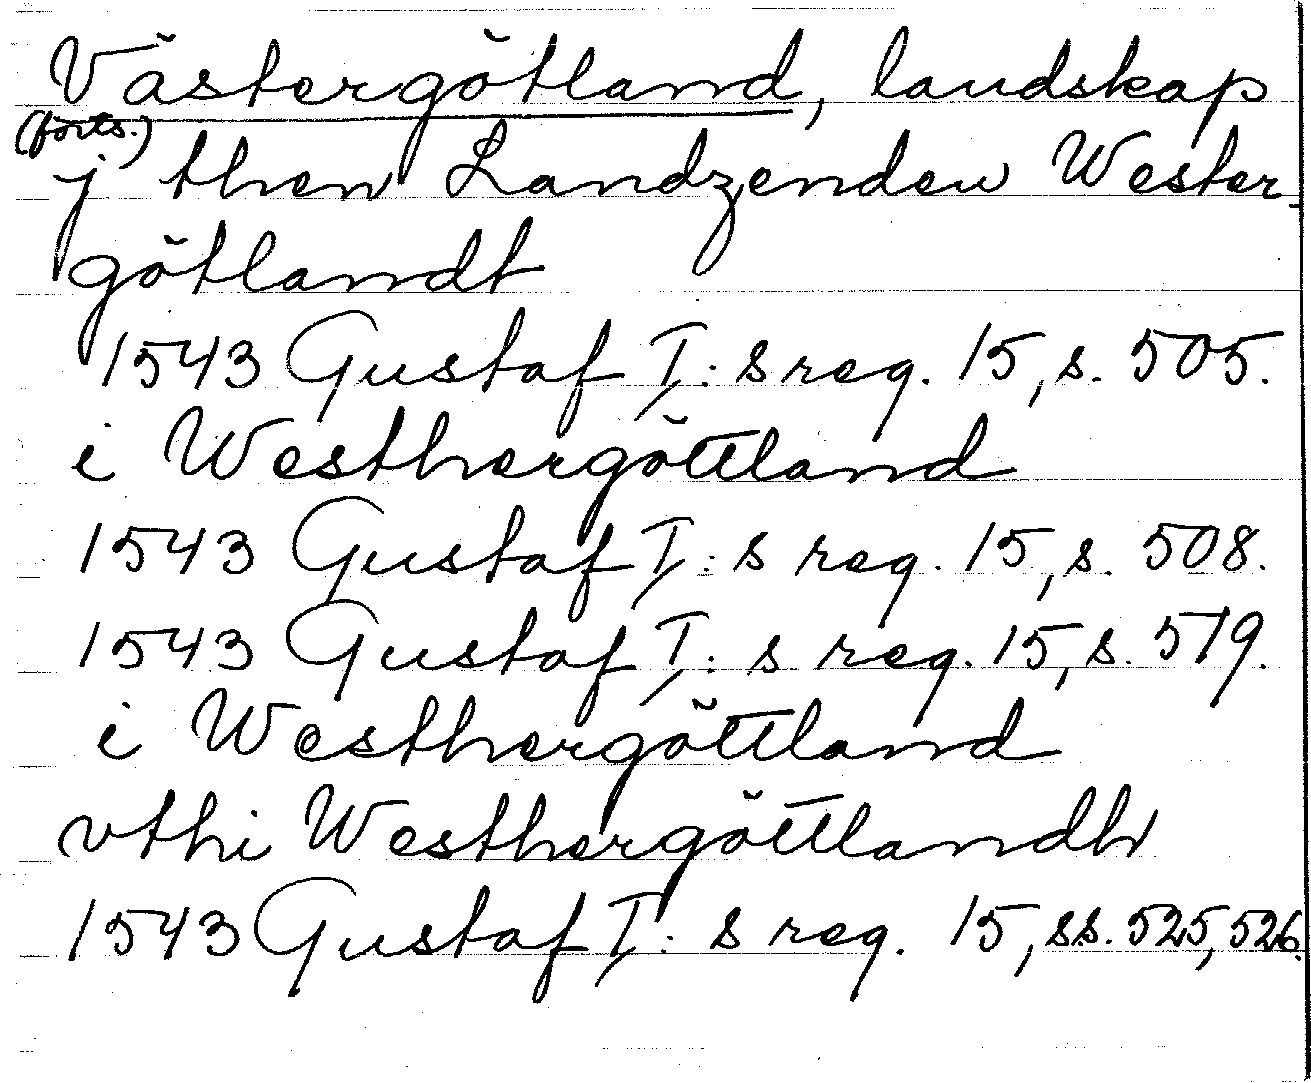 Västergötland, landskap
(forts.)
j then Landzenden Wester-
götlandt
1543 Gustaf I:s reg. 15, s. 505.
i Westhergöttland
1543 Gustaf I:s reg. 15, s. 508.
1543 Gustaf I:s reg. 15, s. 519.
i Westhergöttland
vthi Westhergöttlandh
1543 Gustaf I:s reg. 15, ss. 525, 526.